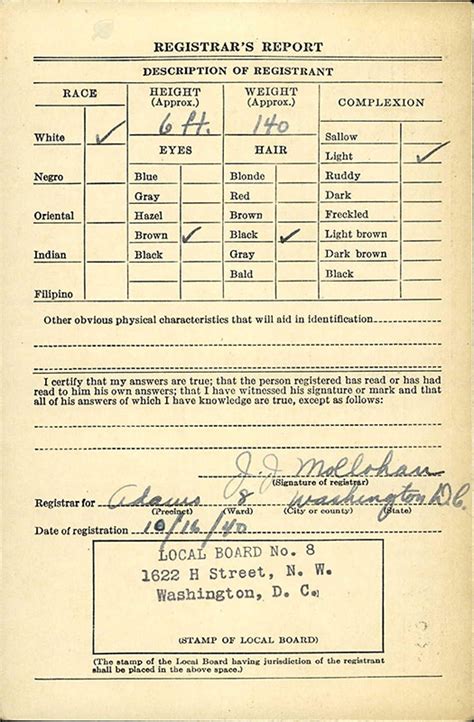 REGISTRAR'S REPORT
DESCRIPTION OF REGISTRANT
RACE
HEIGHT
(Approx.)
WEIGHT
(Approx.)
COMPLEXION
6 ft.
140
White ✓
Sallow
EYES
HAIR
Light ✓
Negro
Blue
Blonde
Ruddy
Gray
Red
Dark
Oriental
Hazel
Brown
Freckled
Brown ✓
Black ✓
Light brown
Indian
Black
Gray
Dark brown
Bald
Black
Filipino
Other obvious physical characteristics that will aid in identification
I certify that my answers are true; that the person registered has read or has had
read to him his own answers; that I have witnessed his signature or mark and that
all of his answers of which I have knowledge are true, except as follows:
J. J. Mollohan
(Signature of registrar)
Registrar for Adams 8 Washington D.C.
(Precinct) (Ward) (City or county) (State)
Date of registration 10/16/40
LOCAL BOARD No. 8
1622 H Street, N. W.
Washington, D. C.
(STAMP OF LOCAL BOARD)
(The stamp of the Local Board having jurisdiction of the registrant
shall be placed in the above space.)